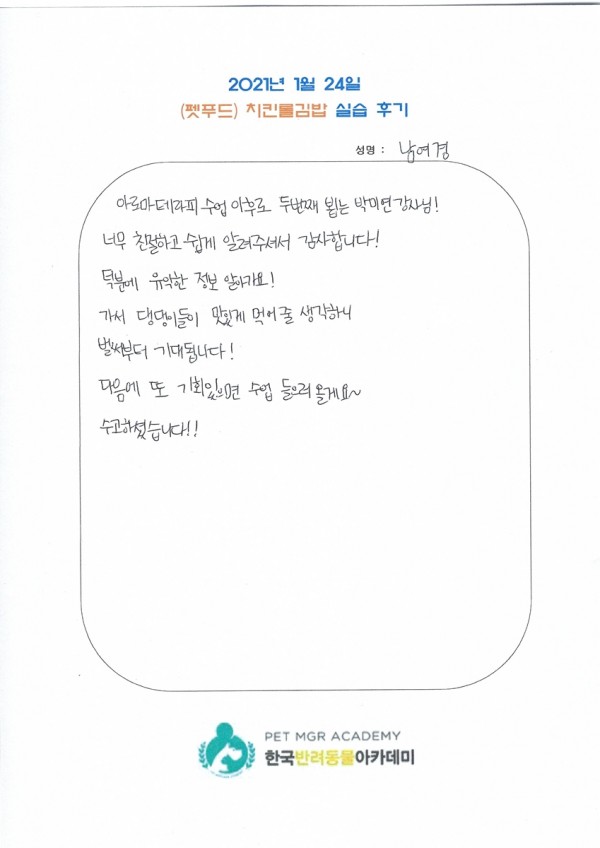 2021년 1월 24일
(펫푸드) 치킨롤김밥 실습 후기
성명 : 남여경
아로마테라피 수업 이후로 두번째 뵙는 박미연강사님!
너무 친절하고 쉽게 알려주셔서 감사합니다!
덕분에 유악한 정보 알아가요!
가서 댕댕이들이 맛있게 먹어줄 생각하니
벌써부터 기대됩니다!
다음에 또 기회있으면 수업 들으러 올게요~
수고하셨습니다!!
PET MGR ACADEMY
한국반려동물아카데미